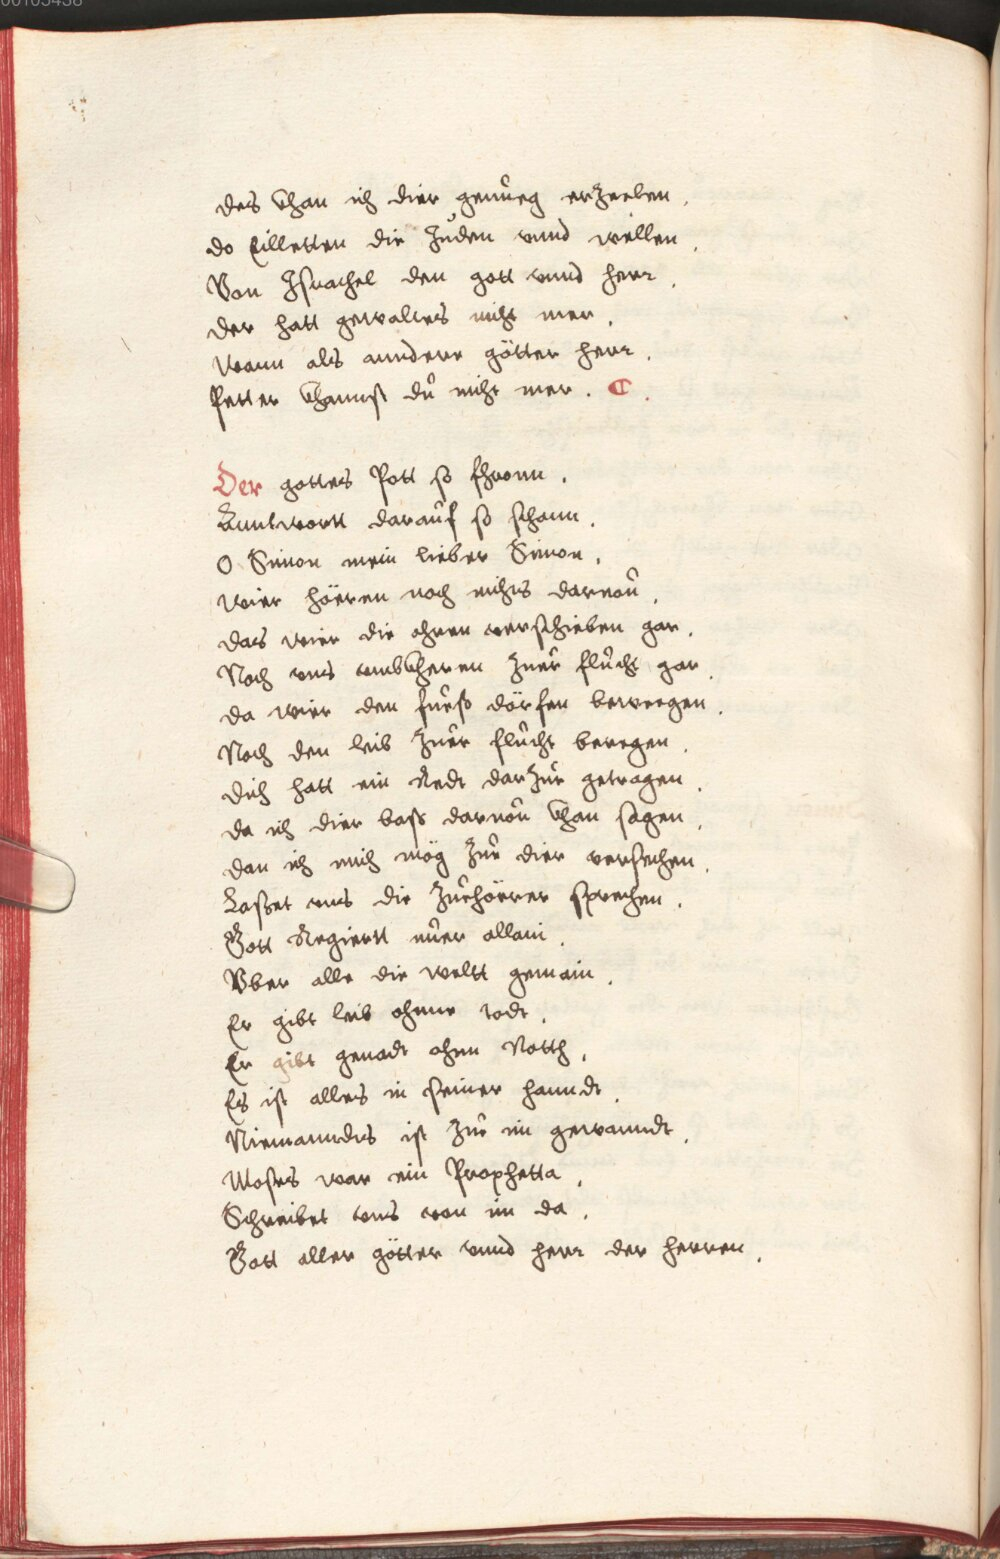 00105438
des khan ich dier genueg erzeelen .
do Eilletten die Juden vnnd wellen .
Von Israhel den gott vnnd herr .
der hatt gewalltes nicht mer .
wann als annderr götter herr .
Petter khannst dů nicht mer . C .
Der gottes Pott so fhronn .
Anntwortt darauf so schonn .
O Simon mein lieber Simon .
wier höeren noch nichts daruon .
das wier die ohren verschieben gar .
Noch vns vmbkheren zuer flucht gar .
da wier den fueß dörfen beweegen .
Noch den leib zuer flucht beregen .
dich hatt ein Redt darzue getragen .
da ich dier baß daruon khan sagen .
dan ich mich mög zue dier versechen .
Laßet vns die zuehörrer sprechen .
Gott Regiertt nuer allain .
Vber alle die weltt gemain .
Er gibt leib ohnne todt .
Er gibt genadt ohnn Notth .
Es ist alles in seiner hanndt .
Niemanndts ist zue im gewanndt .
Moses war ein Prophetta .
Schreibet vns von im da .
Gott aller götter vnnd herr der herren .